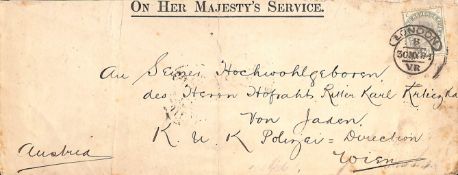 ON HER MAJESTY'S SERVICE.
LONDON
B
30 MY 84
VR
An Seine Hochwohlgeboren
des Herrn Hofraths Ritter Karl
Von Jaden,
K. u. K Polizei = Direction
Austria
Wien